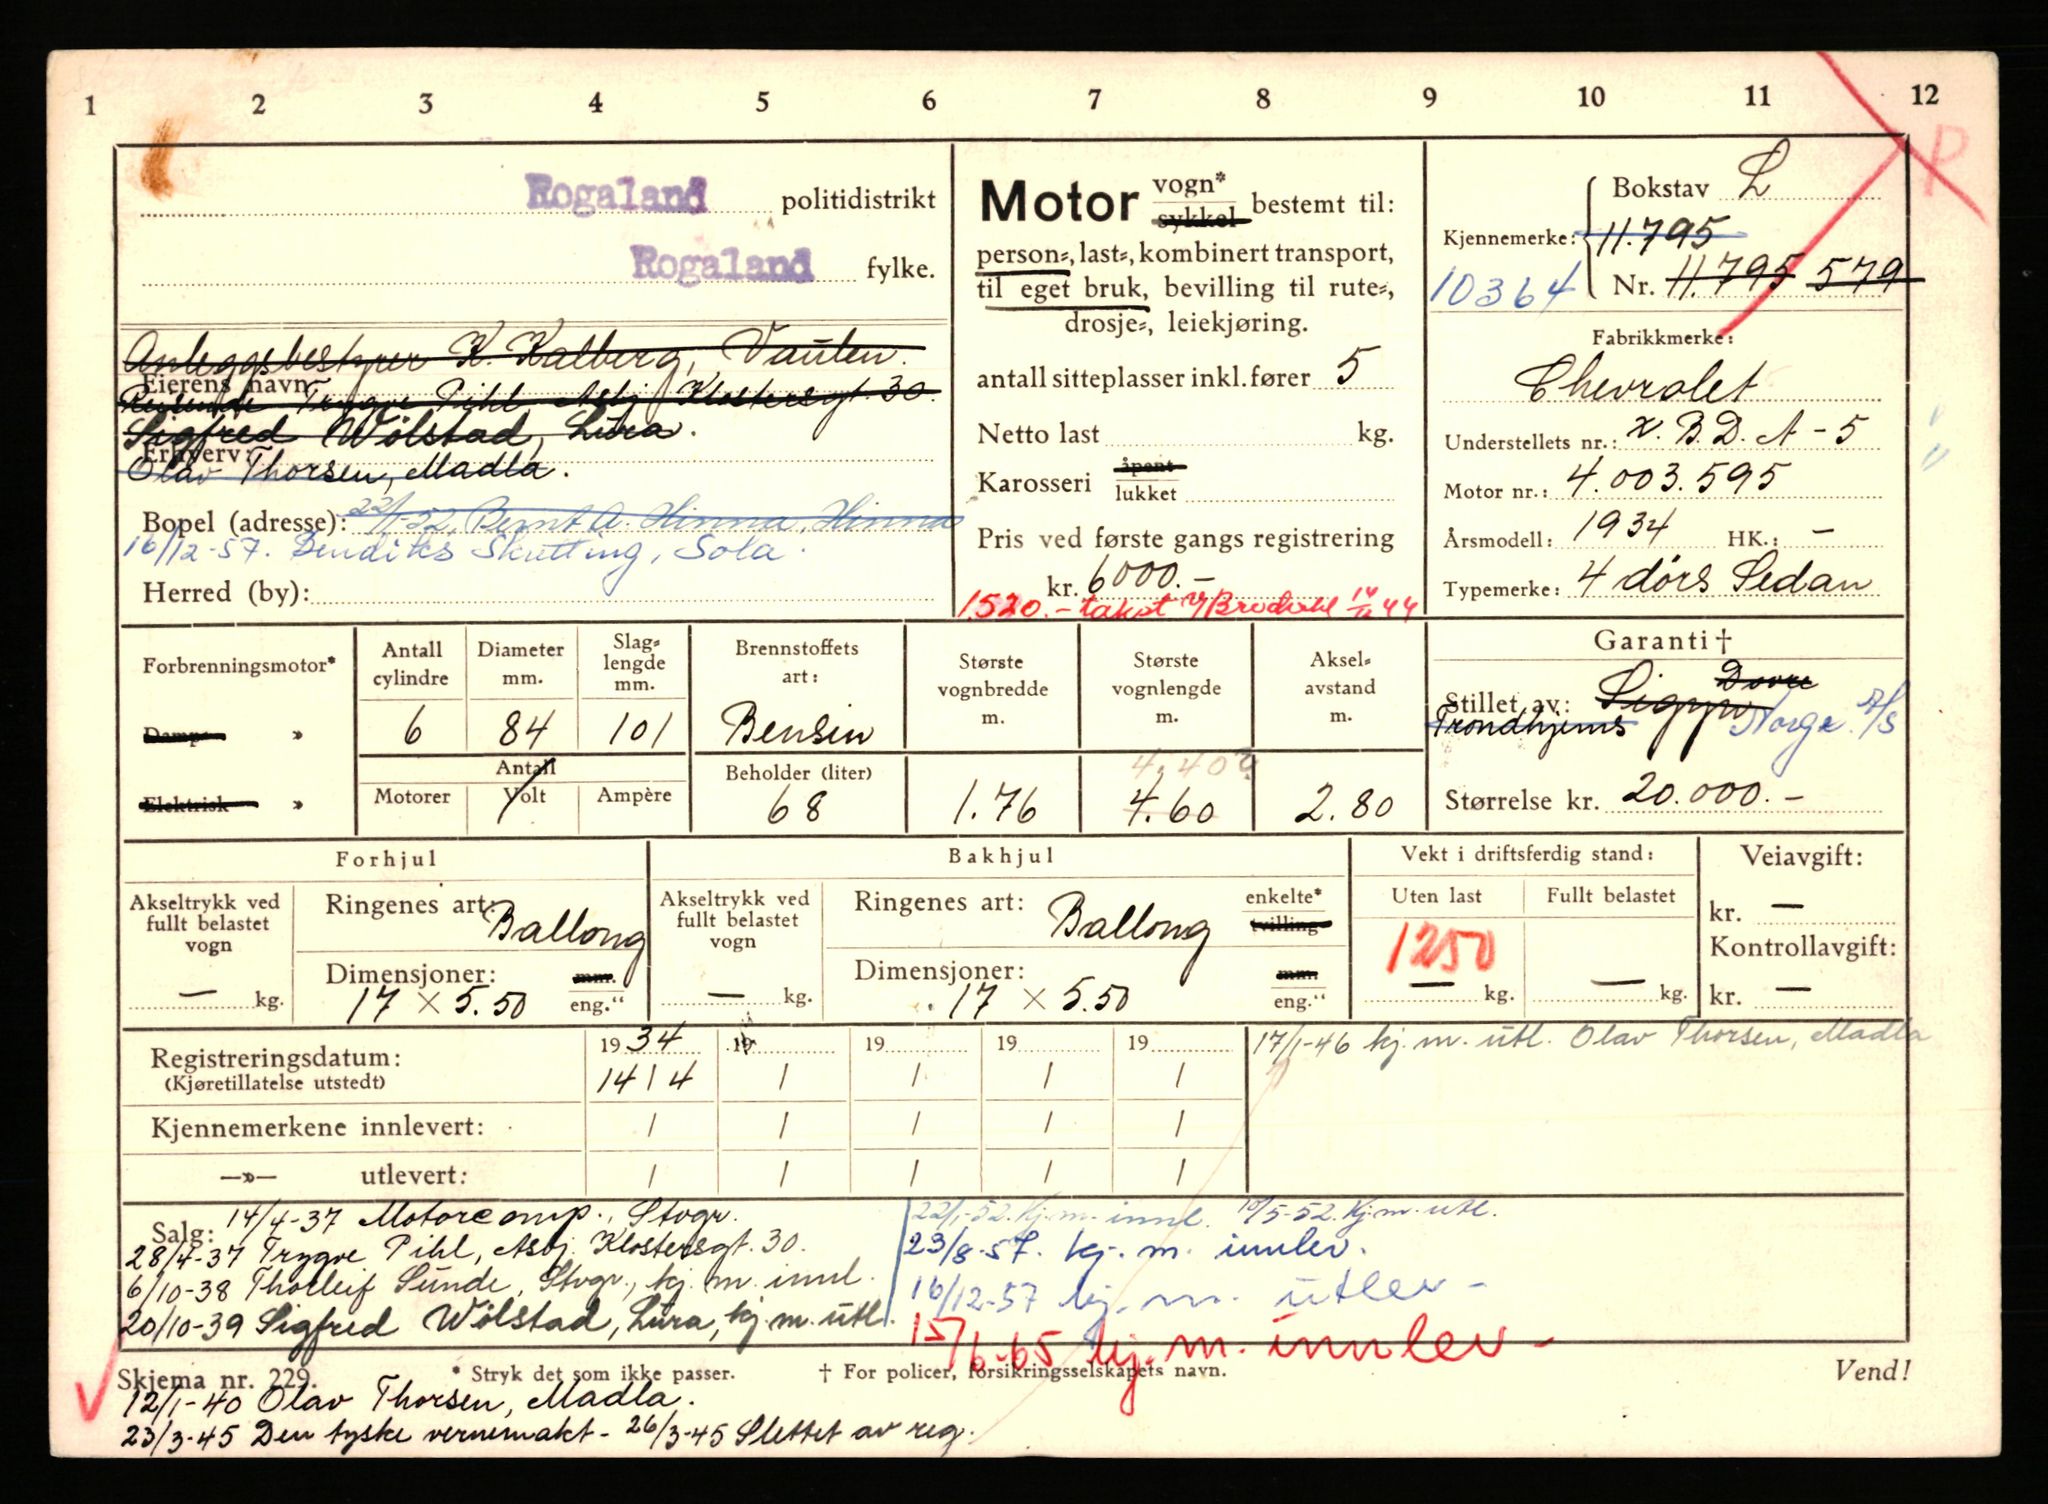 1 2 3 4 5 6 7 8 9 10 11 12
P
Rogaland politidistrikt
Rogaland fylke.
Anleggsbestyrer K. Kalberg, Vaulen.
Eierens navn:
Reisende Trygve Pihl Asbj. Klostersgt. 30
Sigfred Wölstad, Lura.
Erhverv:
Olav Thorsen, Madla.
22/1-52. Bernt A. Hinna, Hinna
Bopel (adresse):
16/12-57. Bendiks Skutting, Sola.
Herred (by):
Motor vogn* sykkel bestemt til:
person=, last=, kombinert transport,
til eget bruk, bevilling til rute=,
drosje=, leiekjøring.
antall sitteplasser inkl. fører 5
Netto last kg.
Karosseri åpent lukket
Pris ved første gangs registrering
kr. 6000.-
1520.- takst
Bokstav L
Kjennemerke: 11.795
10364 Nr. 11.795 579
Fabrikkmerke:
Chevrolet
Understellets nr.: X. B. D. A - 5
Motor nr.: 4.003.595
Årsmodell: 1934 HK.: -
Typemerke: 4 dörs Sedan
Forbrenningsmotor*
Damp= »
Elektrisk »
Antall cylindre 6
Diameter mm. 84
Slag= lengde mm. 101
Antall
Motorer Volt Ampère
Brennstoffets art:
Bensin
Beholder (liter)
68
Største vognbredde m.
1.76
Største vognlengde m.
4.40?
4.60
Aksel= avstand m.
2.80
Garanti †
Dovre
Stillet av: Sigyn
Trondhjems Norge A/S
Størrelse kr. 20.000.-
Forhjul
Akseltrykk ved fullt belastet vogn
— kg.
Ringenes art: Ballong
Dimensjoner: mm.
17 × 5.50 eng."
Bakhjul
Akseltrykk ved fullt belastet vogn
— kg.
Ringenes art: Ballong enkelte* tvilling=
Dimensjoner: mm.
17 × 5.50 eng."
Vekt i driftsferdig stand:
Uten last Fullt belastet
1250
— kg. — kg.
Veiavgift:
kr. —
Kontrollavgift:
kr. —
Registreringsdatum: 1934 19 19 19 19
(Kjøretillatelse utstedt) 14 / 4 / / / /
Kjennemerkene innlevert: / / / / /
—»— utlevert: / / / / /
17/1-46 kj. m. utl. Olav Thorsen, Madla
Salg: 14/4-37 Motorcomp., Stvgr.
28/4-37 Trygve Pihl, Asbj. Klostersgt. 30.
6/10-38 Tholleif Sunde, Stvgr., kj. m. innl.
20/10-39 Sigfred Wölstad, Lura, kj. m. utl.
22/1-52. kj. m. innl. 10/5-52. kj. m. utl.
23/8-57. kj. m. innlev.
16/12-57 kj. m. utlev-
15/6-65 kj. m. innlev-
Skjema nr. 229. * Stryk det som ikke passer. † For policer, forsikringsselskapets navn. Vend!
12/1-40 Olav Thorsen, Madla.
23/3-45 Den tyske vernemakt - 26/3-45 Slettet av reg.